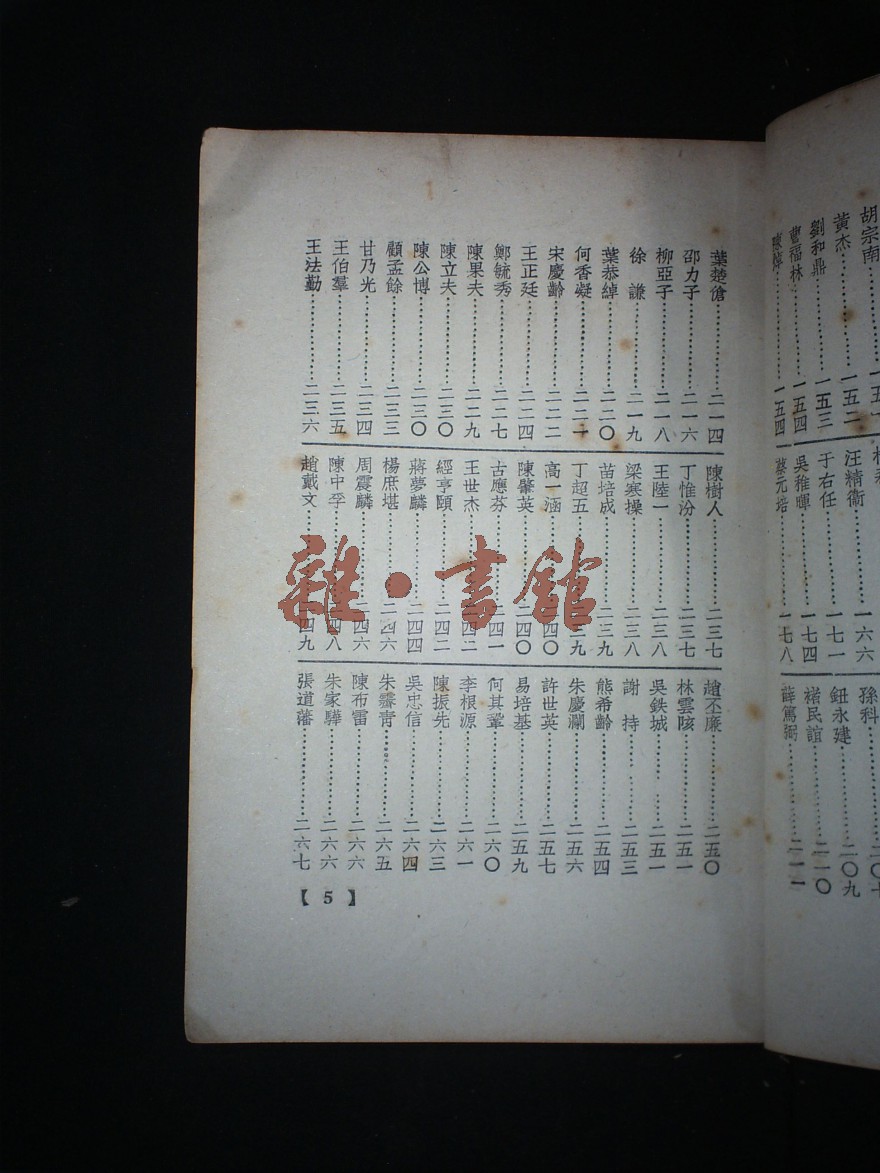 胡宗南⋯⋯一五一
黃杰⋯⋯一五二
劉和鼎⋯⋯一五三
曹福林⋯⋯一五四
一五四
汪精衞⋯⋯一六六
于右任⋯⋯一七一
吳稚暉⋯⋯一七四
蔡元培⋯⋯一七八
孫科⋯⋯二〇七
鈕永建⋯⋯二〇九
褚民誼⋯⋯二一〇
薛篤弼⋯⋯二一一
葉楚傖⋯⋯二一四
邵力子⋯⋯二一六
柳亞子⋯⋯二一八
徐謙⋯⋯二一九
葉恭綽⋯⋯二二〇
何香凝⋯⋯二二一
宋慶齡⋯⋯二二二
王正廷⋯⋯二二四
鄭毓秀⋯⋯二二七
陳果夫⋯⋯二二九
陳立夫⋯⋯二三〇
陳公博⋯⋯二三〇
顧孟餘⋯⋯二三三
甘乃光⋯⋯二三四
王伯羣⋯⋯二三五
王法勤⋯⋯二三六
陳樹人⋯⋯二三七
丁惟汾⋯⋯二三七
王陸一⋯⋯二三八
梁寒操⋯⋯二三八
苗培成⋯⋯二三九
丁超五⋯⋯二三九
高一涵⋯⋯二四〇
陳肇英⋯⋯二四〇
古應芬⋯⋯二四一
王世杰⋯⋯二四二
經亨頤⋯⋯二四二
蔣夢麟⋯⋯二四四
楊庶堪⋯⋯二四六
周震麟⋯⋯二四六
陳中孚⋯⋯二四八
趙戴文⋯⋯二四九
趙丕廉⋯⋯二五〇
林雲陔⋯⋯二五一
吳鉄城⋯⋯二五一
謝持⋯⋯二五三
熊希齡⋯⋯二五四
朱慶瀾⋯⋯二五六
許世英⋯⋯二五七
易培基⋯⋯二五九
何其鞏⋯⋯二六〇
李根源⋯⋯二六一
陳振先⋯⋯二六三
吳忠信⋯⋯二六四
朱霽青⋯⋯二六五
陳布雷⋯⋯二六六
朱家驊⋯⋯二六六
張道藩⋯⋯二六七
【5】
雜·書館